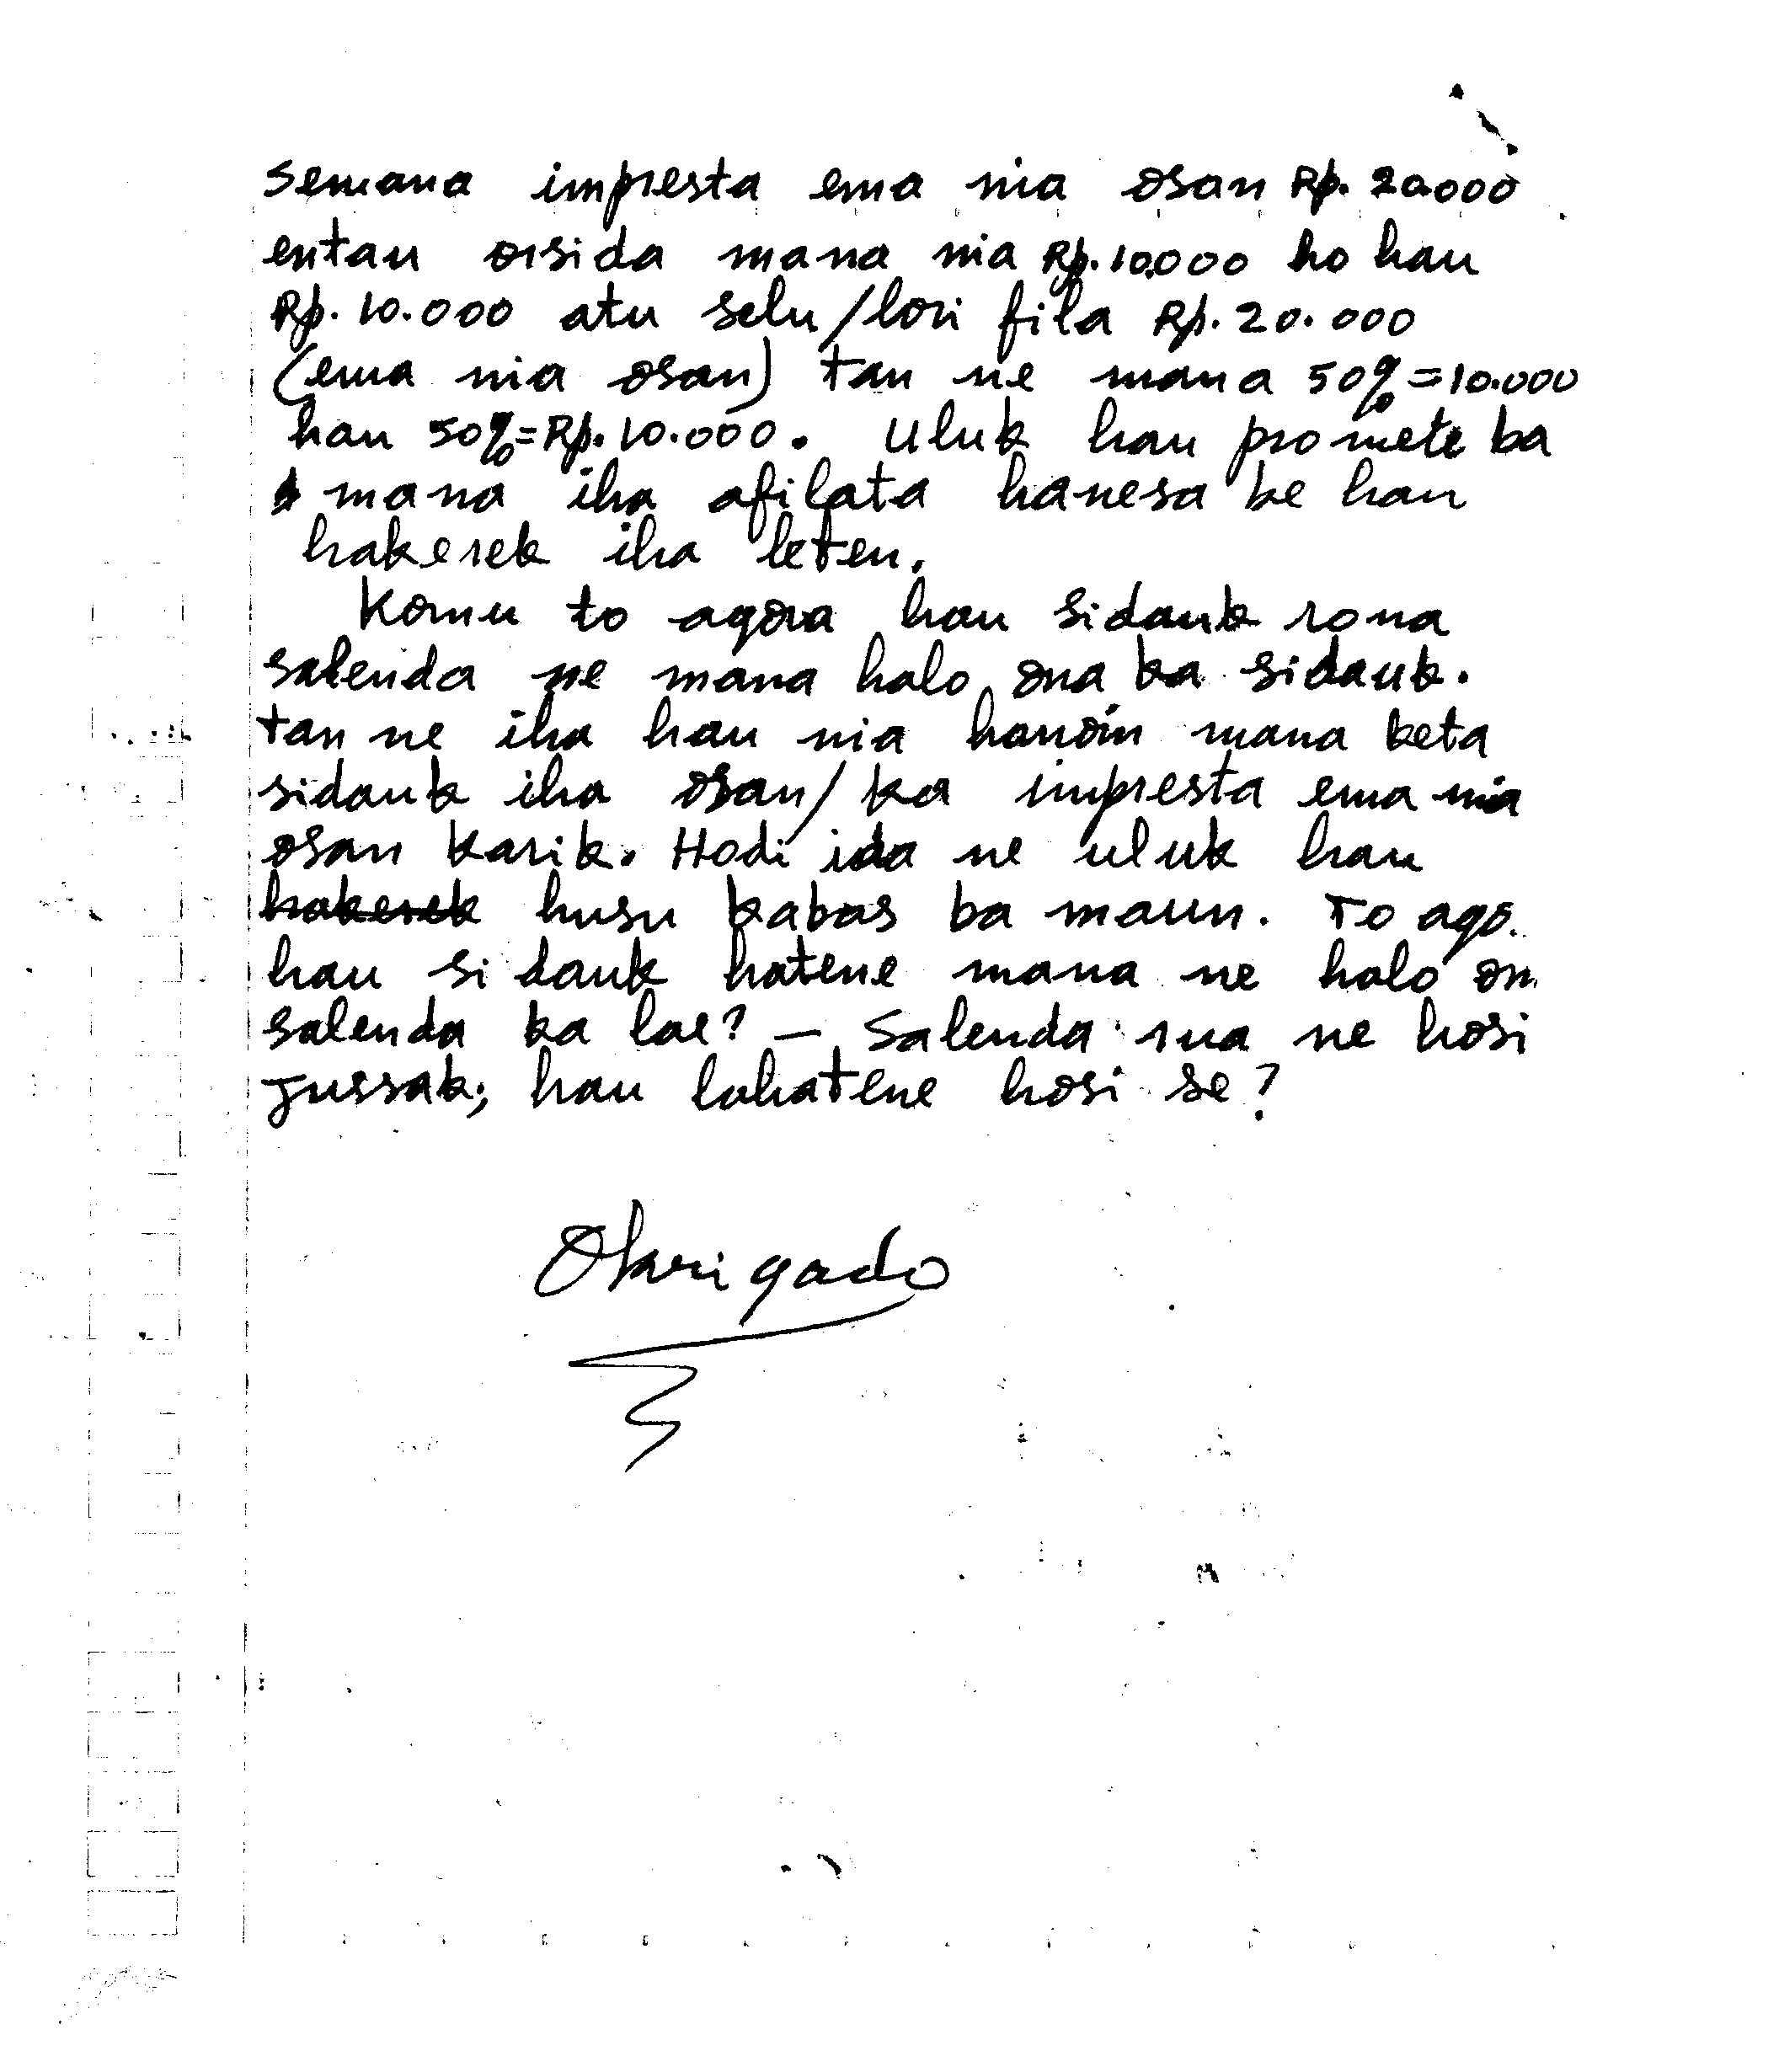 semana impresta ema nia osan Rp. 20.000
entau orsida mana nia Rp. 10.000 ho hau
Rp. 10.000 atu selu/lori fila Rp. 20.000
(ema nia osan) tan ne mana 50% = 10.000
hau 50% = Rp. 10.000. Uluk hau promete ba
mana iha afilata hanesa be hau
hakerek iha leten.
Komu to agora hau sidauk rona
salenda ne mana halo ona ka sidauk.
tan ne iha hau nia hanoin mana keta
sidauk iha osan/ka impresta ema nia
osan karik. Hodi ida ne uluk hau
hakerek husu kabas ba maun. To ago.
hau sidauk hatene mana ne halo on
salenda ka lae? – Salenda rua ne hosi
Jussak; hau lahatene hosi se?
Obrigado